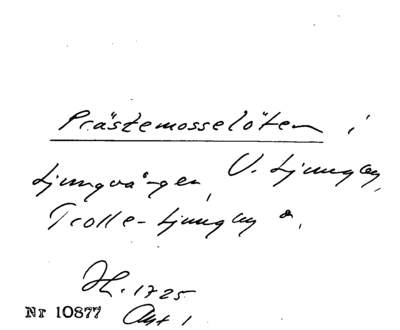 Prästemosselöten i
Ljungvången, V. Ljungby,
Trolle-Ljungby s.
H. 1725
Akt 1
Nr 10877